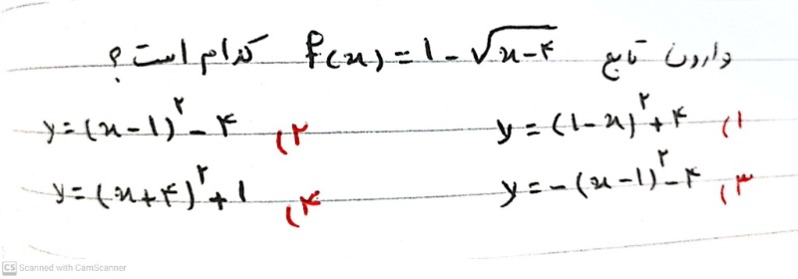 وارون تابع f(x) = 1 - √x-۴ کدام است ؟
۱) y = (1-x)^۲ + ۴ ۲) y = (x-1)^۲ - ۴
۳) y = -(x-1)^۲ - ۴ ۴) y = (x+۴)^۲ + 1
CS Scanned with CamScanner